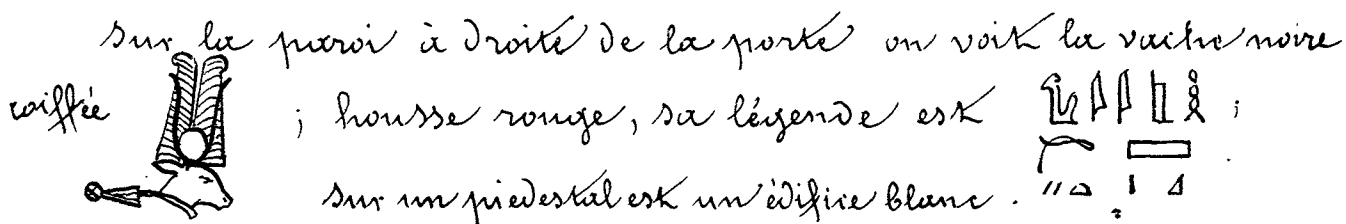 Sur la paroi à droite de la porte on voit la vache noire
coiffée ; housse rouge, sa légende est ;
sur un piedestal est un édifice blanc.